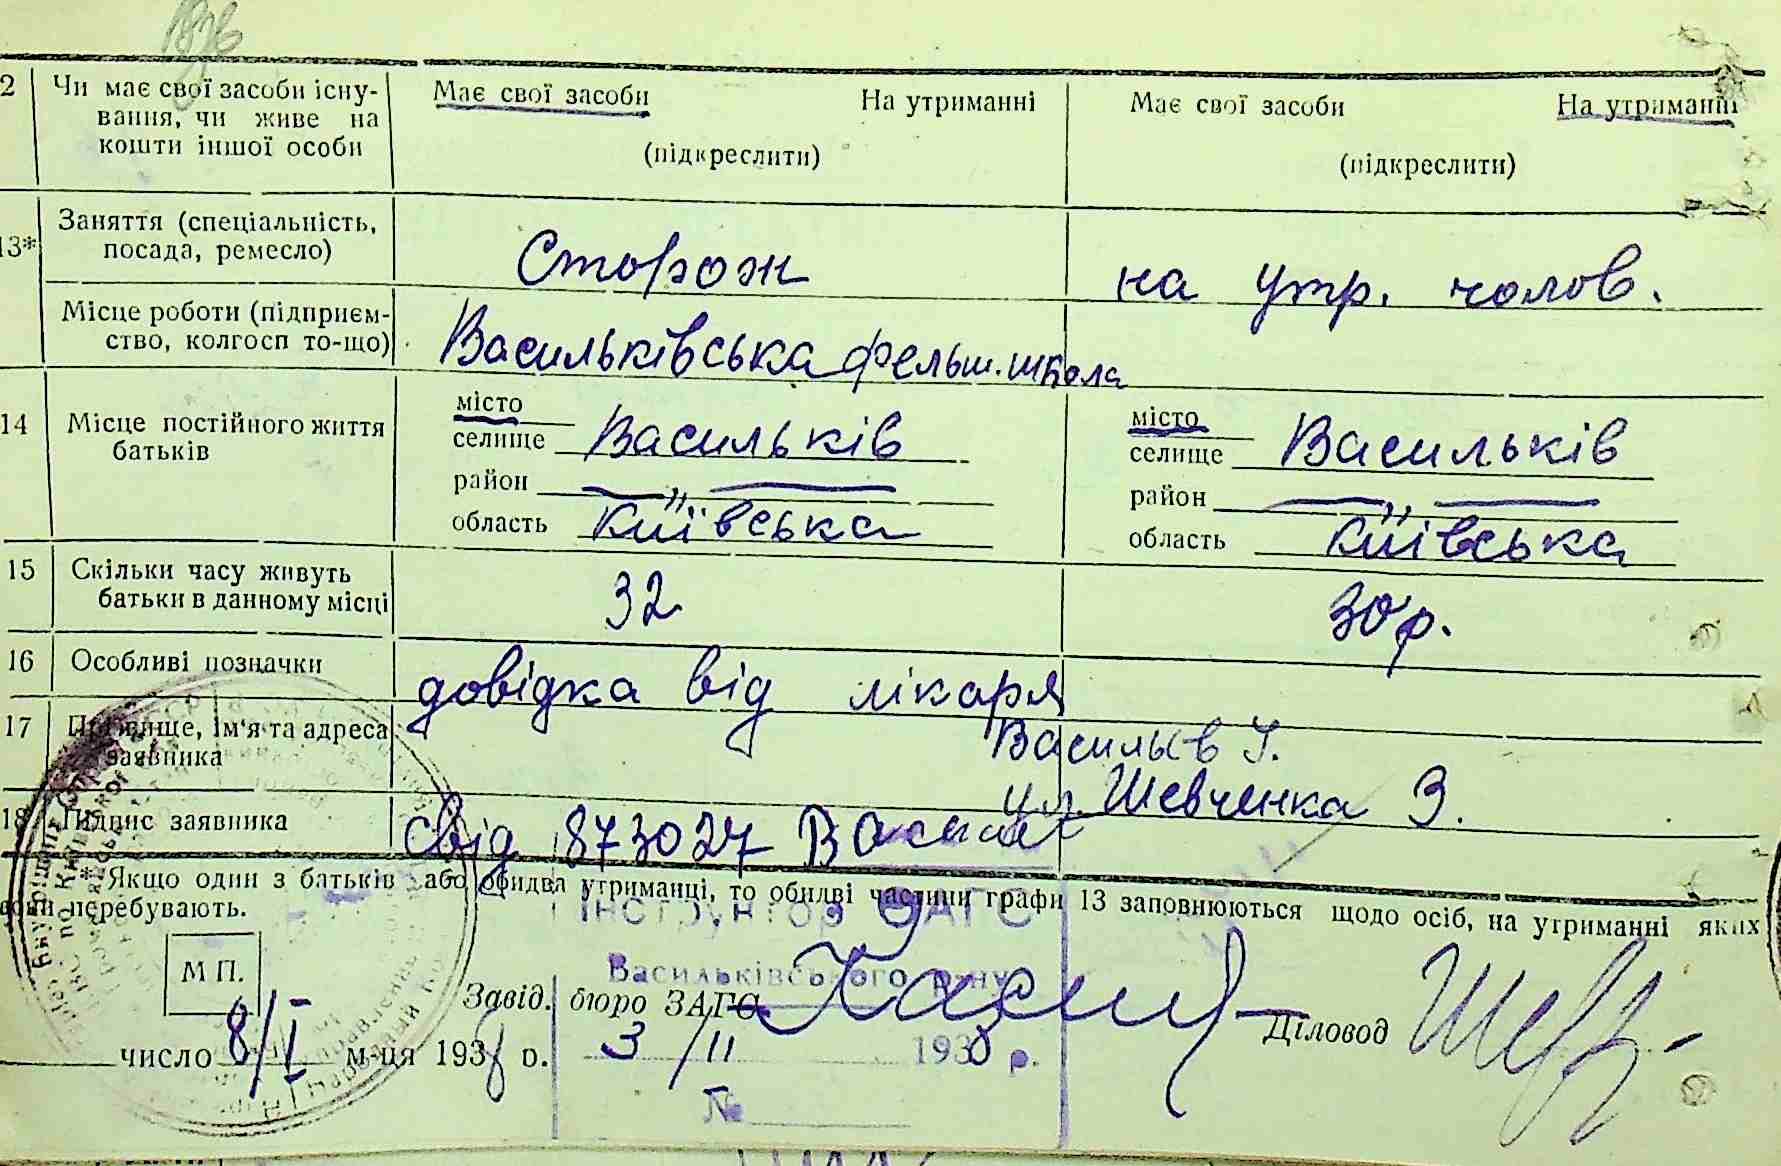 2 Чи має свої засоби існу- Має свої засоби На утриманні Має свої засоби На утриманні
вання, чи живе на
кошти іншої особи (підкреслити) (підкреслити)
13* Заняття (спеціальність, посада, ремесло) Сторож на утр. чолов.
Місце роботи (підприєм-
ство, колгосп то-що) Васильківська фельш. школа
14 Місце постійного життя батьків
місто місто
селище Васильків селище Васильків
район — „ — район — „ —
область Київська область Київська
15 Скільки часу живуть
батьки в данному місці 32 30 р.
16 Особливі позначки довідка від лікаря
17 Прізвище, ім'я та адреса Васильєв
заявника ул Шевченка 3.
18 Підпис заявника свід 873027
* Якщо один з батьків або обидва утриманці, то обидві частини графи 13 заповнюються щодо осіб, на утриманні яких
вони перебувають.
Інструктор ЗАГС
М П. Васильківського
Завід. бюро ЗАГС Діловод
число 8/I м-ця 1938 р. 3/II 1938 р.
№